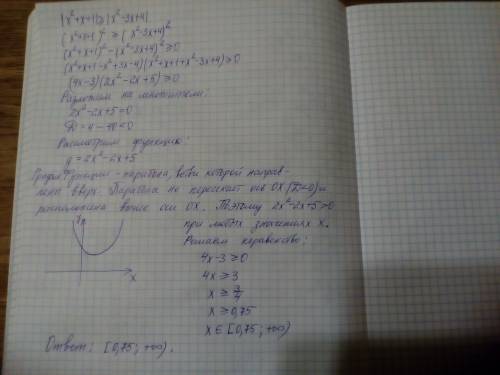 |x²+x+1| ≥ |x²-3x+4|
(x²+x+1)² ≥ (x²-3x+4)²
(x²+x+1)² - (x²-3x+4)² ≥ 0
(x²+x+1-x²+3x-4)(x²+x+1+x²-3x+4) ≥ 0
(4x-3)(2x²-2x+5) ≥ 0
Разложим на множители:
2x²-2x+5=0
D = 4-40<0
Рассмотрим функцию:
y = 2x²-2x+5
График функции - парабола, ветви которой направ-
лены вверх. Парабола не пересекает ось OX (D<0) и
расположена выше оси OX. Поэтому 2x²-2x+5>0
при любых значениях x.
Решаем неравенство:
4x-3 ≥ 0
4x ≥ 3
x ≥ 3/4
x ≥ 0,75
x ∈ [0,75; +∞)
y
x
Ответ: [0,75; +∞).